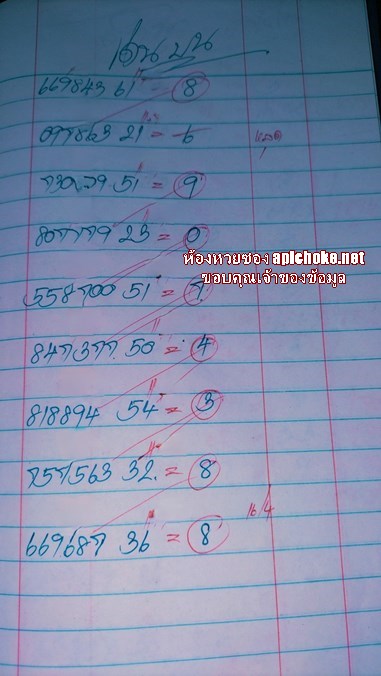 เด่นบน
669843 61 = 8
097863 21 = 6
730279 51 = 9
807779 23 = 0
ห้องหวยซอง aplchoke.net
ขอบคุณเจ้าของข้อมูล
558700 51 = 7
847377 50 = 4
818894 54 = 3
757563 32 = 8
16/4
669687 36 = 8